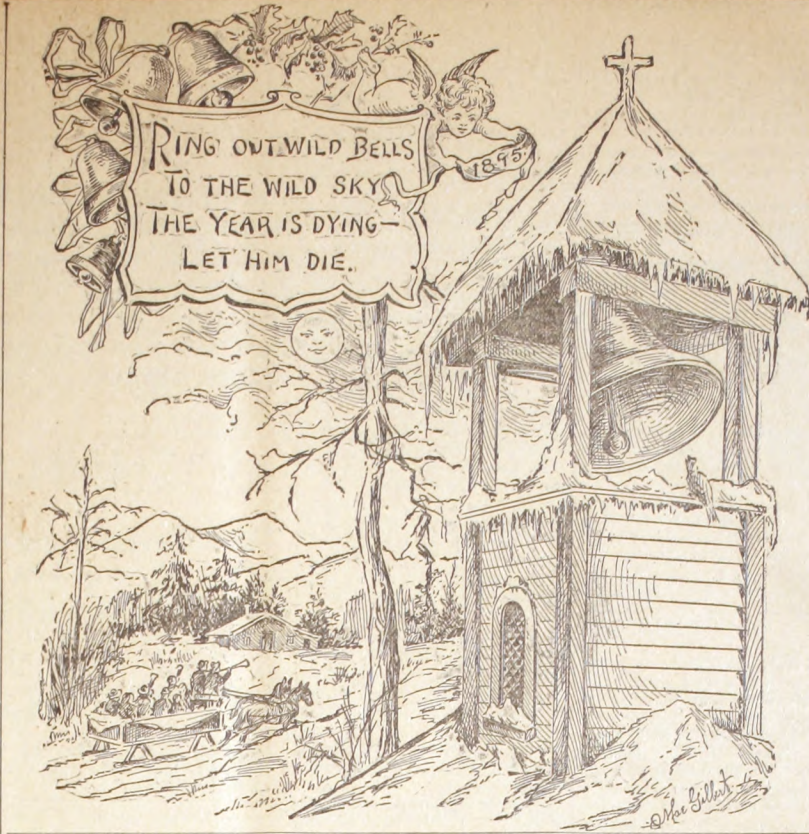 RING OUT WILD BELLS
TO THE WILD SKY
THE YEAR IS DYING—
LET HIM DIE.
1895
Mac Gilbert